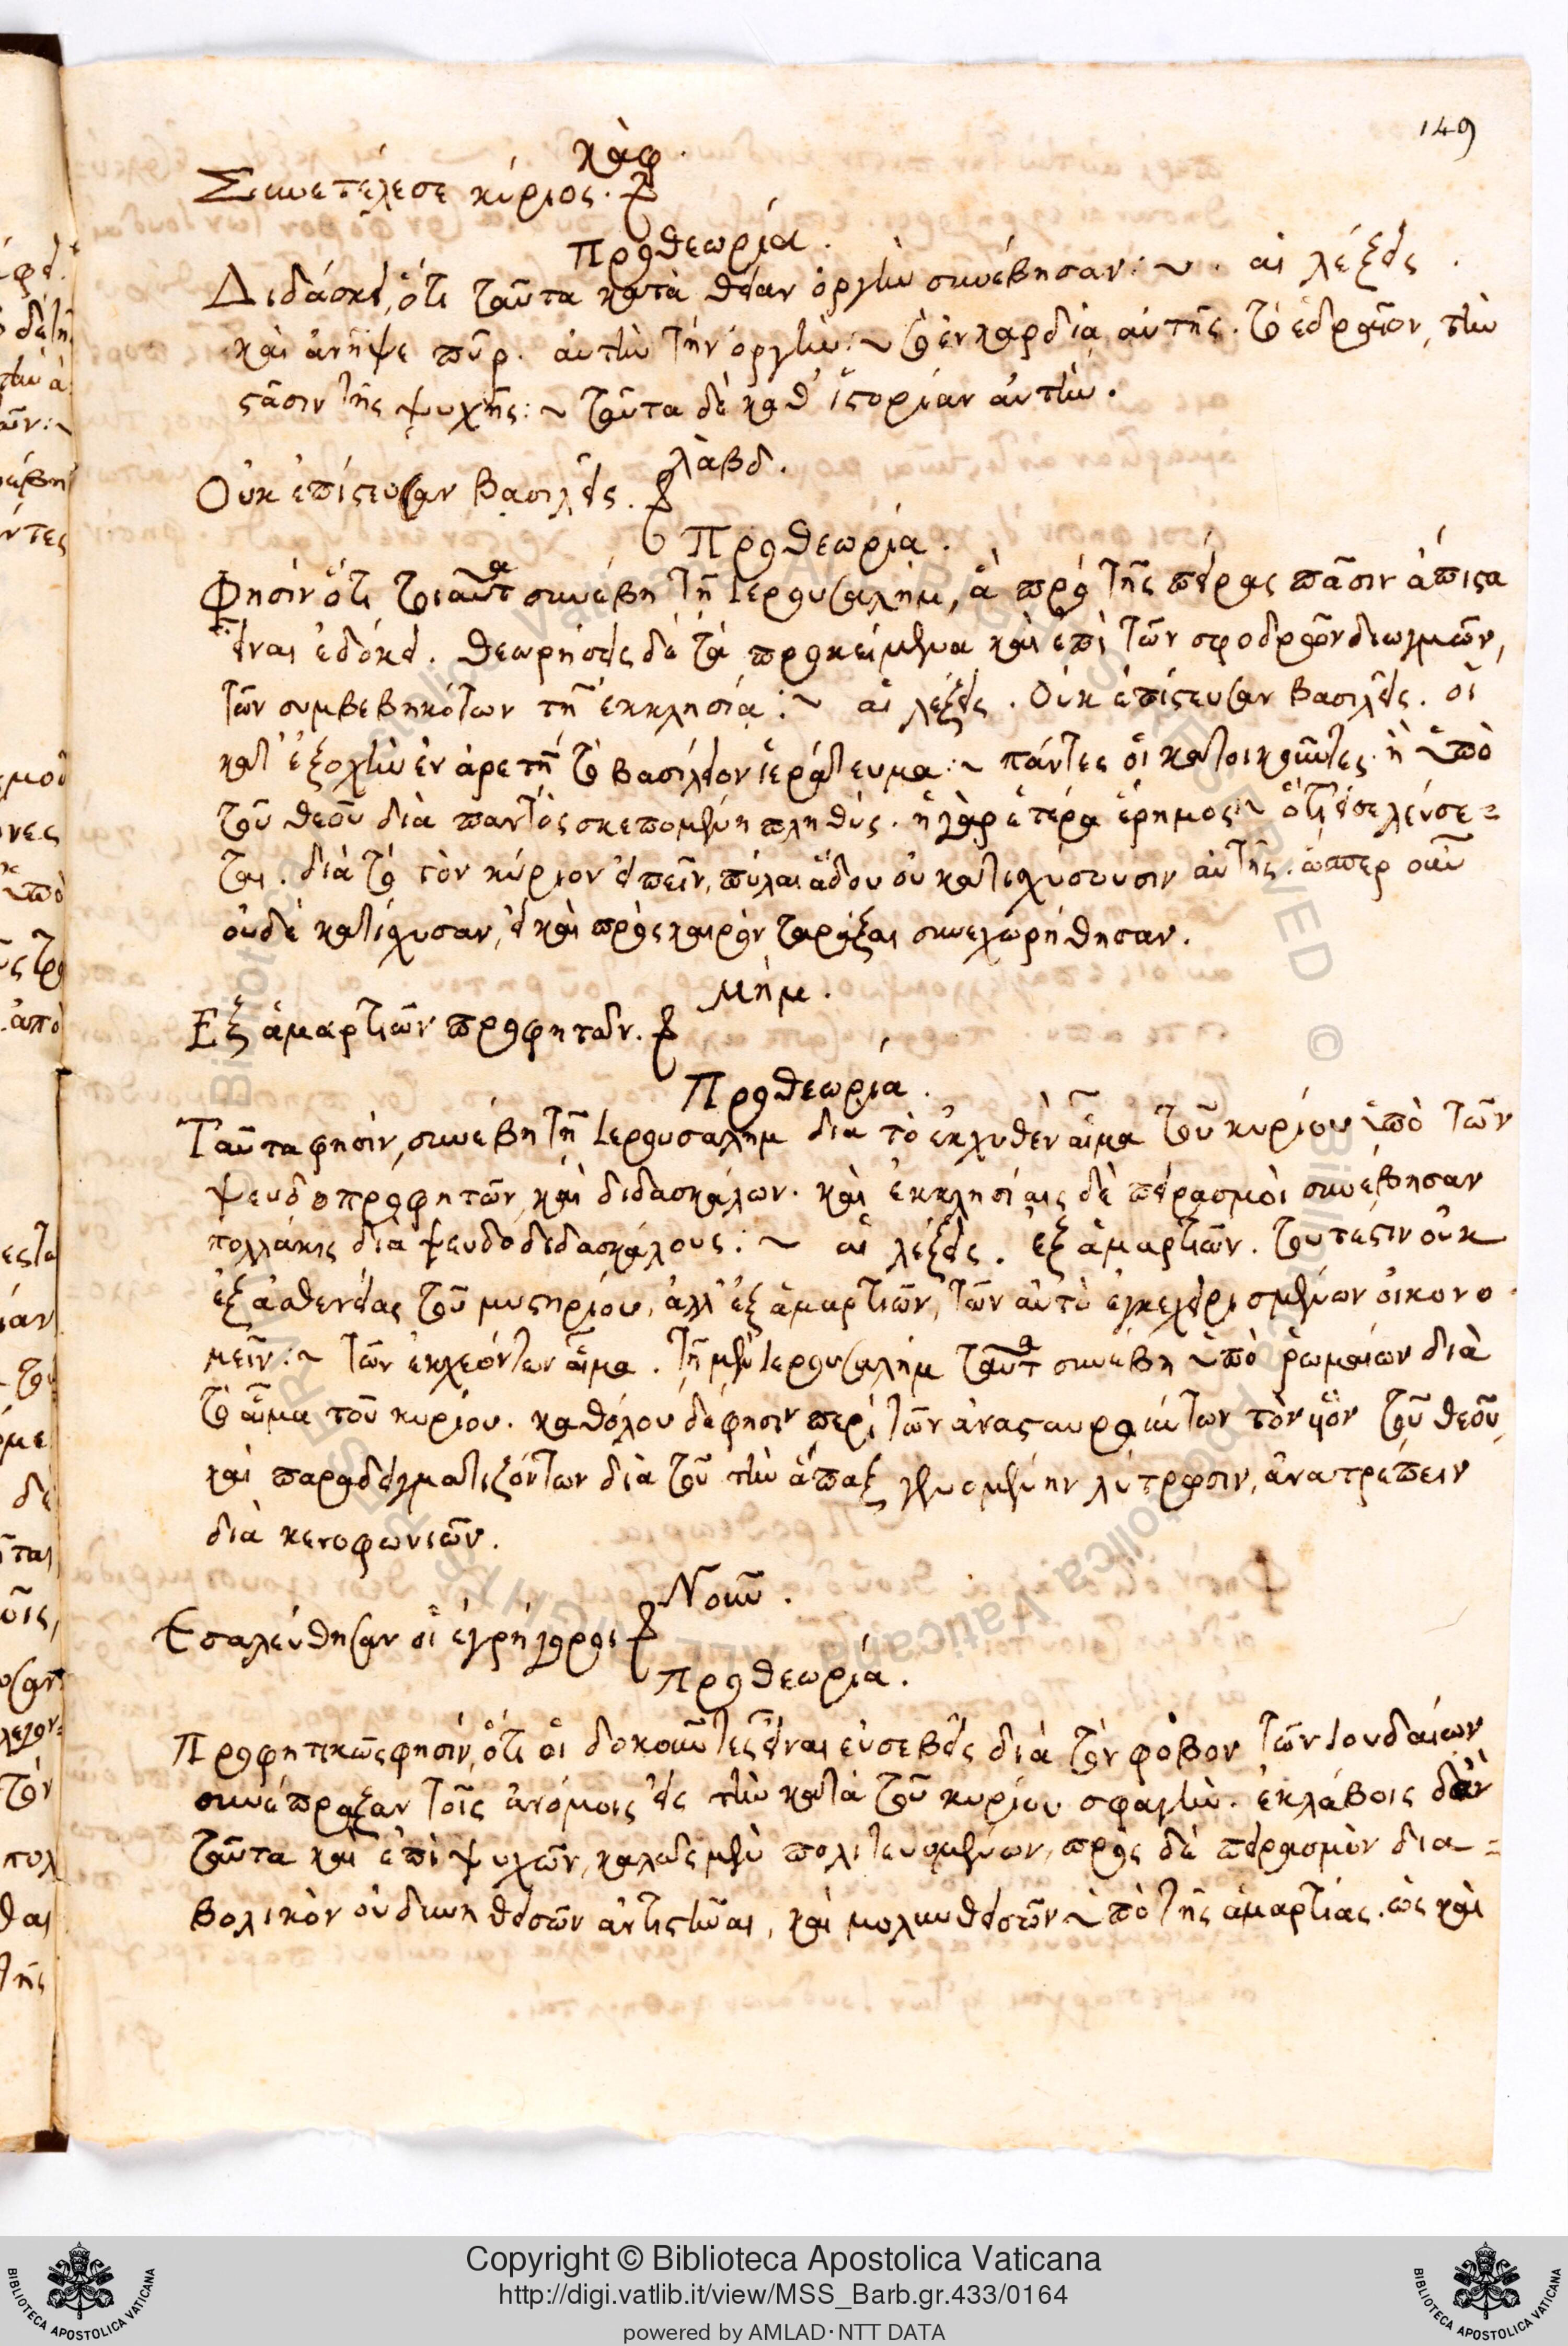 149
κὰφ.
Συνετέλεσε κύριος.
Προθεωρία.
Διδάσκει, ὅτι ταῦτα κατὰ θείαν ὀργὴν συνέβησαν:~. αἱ λέξεις.
καὶ ἀνῆψε πῦρ. αὐτὴν τὴν ὀργήν:~ τὸ ἐν καρδίᾳ αὐτῆς. τὸ ἑδραῖον, τὴν
στᾶσιν τῆς ψυχῆς:~ ταῦτα δὲ καθ' ἱστορίαν αὐτήν.
λὰβδ.
Οὐκ ἐπίστευσαν βασιλεῖς.
Προθεωρία.
Φησὶν ὅτι τοιαῦτα συνέβη τῇ Ἱερουσαλὴμ, ἃ πρὸ τῆς πείρας πᾶσιν ἄπιστα
εἶναι ἐδόκει. θεωρήσεις δὲ τὰ προκείμενα καὶ ἐπὶ τῶν σφοδρῶν διωγμῶν,
τῶν συμβεβηκότων τῇ ἐκκλησίᾳ:~ αἱ λέξεις. Οὐκ ἐπίστευσαν βασιλεῖς. οἱ
κατ' ἐξοχὴν ἐν ἀρετῇ τὸ βασίλειον ἱεράτευμα:~ πάντες οἱ κατοικοῦντες. ἡ ὑπὸ
τοῦ θεοῦ διὰ παντὸς σκεπομένη πληθύς. ἡ γὰρ ἑτέρα ἔρημος:~ ὅτι εἰσελεύσε=
ται. διὰ τὸ τὸν κύριον εἰπεῖν, πύλαι ἅδου οὐ κατισχύσουσιν αὐτῆς. ὥσπερ οὖν
οὐδὲ κατίσχυσαν, εἰ καὶ πρὸς καιρὸν ταράξαι συνεχωρήθησαν.
μήμ.
Ἐξ ἁμαρτιῶν προφητῶν.
Προθεωρία.
Ταῦτα φησὶν, συνέβη τῇ Ἱερουσαλημ δια τὸ ἐκχυθὲν αἷμα τοῦ κυρίου ὑπὸ τῶν
ψευδοπροφητῶν, καὶ διδασκάλων. καὶ ἐκκλησίαις δὲ πειρασμοὶ συνέβησαν
πολλάκις διὰ ψευδοδιδασκάλους:~ αἱ λέξεις. ἐξ ἁμαρτιῶν. τουτέστιν οὐκ
ἐξ ἀσθενείας τοῦ μυστηρίου, ἀλλ' ἐξ ἁμαρτιῶν, τῶν αὐτὸ ἐγκεχειρισμένων οἰκονο
μεῖν:~ τῶν ἐκχεόντων αἷμα. τῇ μὲν Ἱερουσαλὴμ ταῦτα συνέβη ὑπὸ ῥωμαίων διὰ
τὸ αἷμα τοῦ κυρίου. καθόλου δέ φησιν περὶ τῶν ἀνασταυρούντων τὸν υἱὸν τοῦ θεοῦ,
καὶ παραδειγματιζόντων διὰ τοῦ τὴν ἅπαξ γενομένην λύτρωσιν, ἀνατρέπειν
διὰ κενοφωνιῶν.
Νοῦν.
Ἐσαλεύθησαν οἱ ἐγρήγοροι
Προθεωρία.
Προφητικῶς φησὶν, ὅτι οἱ δοκοῦντες εἶναι εὐσεβεῖς διὰ τὸν φόβον τῶν Ἰουδαίων
συνέπραξαν τοῖς ἀνόμοις εἰς τὴν κατὰ τοῦ κυρίου σφαγήν. ἐκλάβοις δ' ἂν
ταῦτα καὶ ἐπὶ ψυχῶν, καλῶς μὲν πολιτευομένων, πρὸς δὲ πειρασμὸν δια=
βολικὸν οὐ δυνηθεισῶν ἀντιστῆναι, καὶ μολυνθεισῶν ὑπὸ τῆς ἁμαρτίας. ὡς καὶ
Copyright © Biblioteca Apostolica Vaticana
http://digi.vatlib.it/view/MSS_Barb.gr.433/0164
powered by AMLAD·NTT DATA
BIBLIOTECA APOSTOLICA VATICANA
BIBLIOTECA APOSTOLICA VATICANA